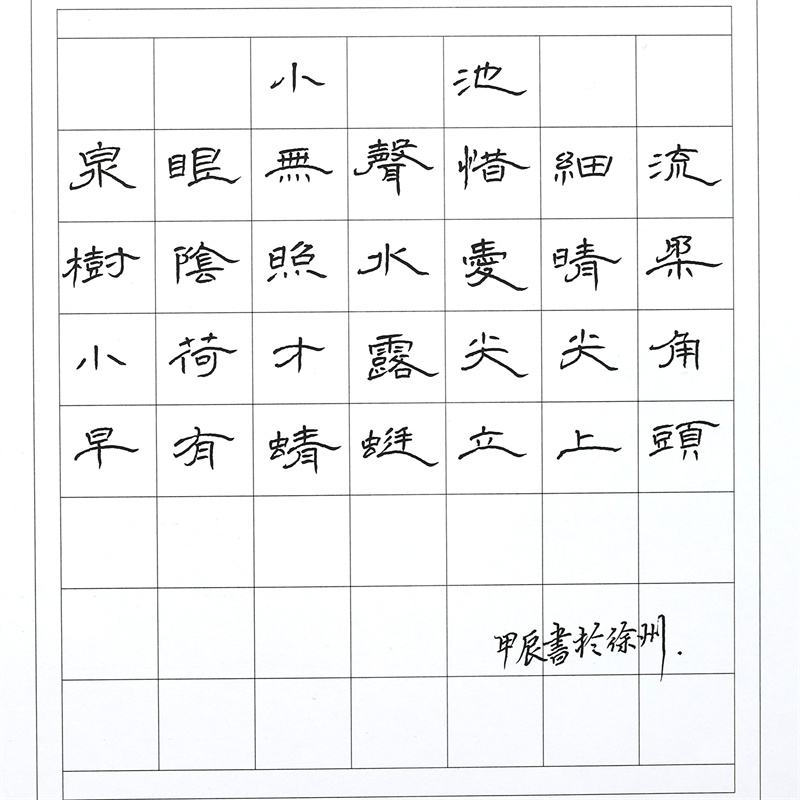 小池
泉眼無聲惜細流
樹陰照水愛晴柔
小荷才露尖尖角
早有蜻蜓立上頭
甲辰書於徐州.